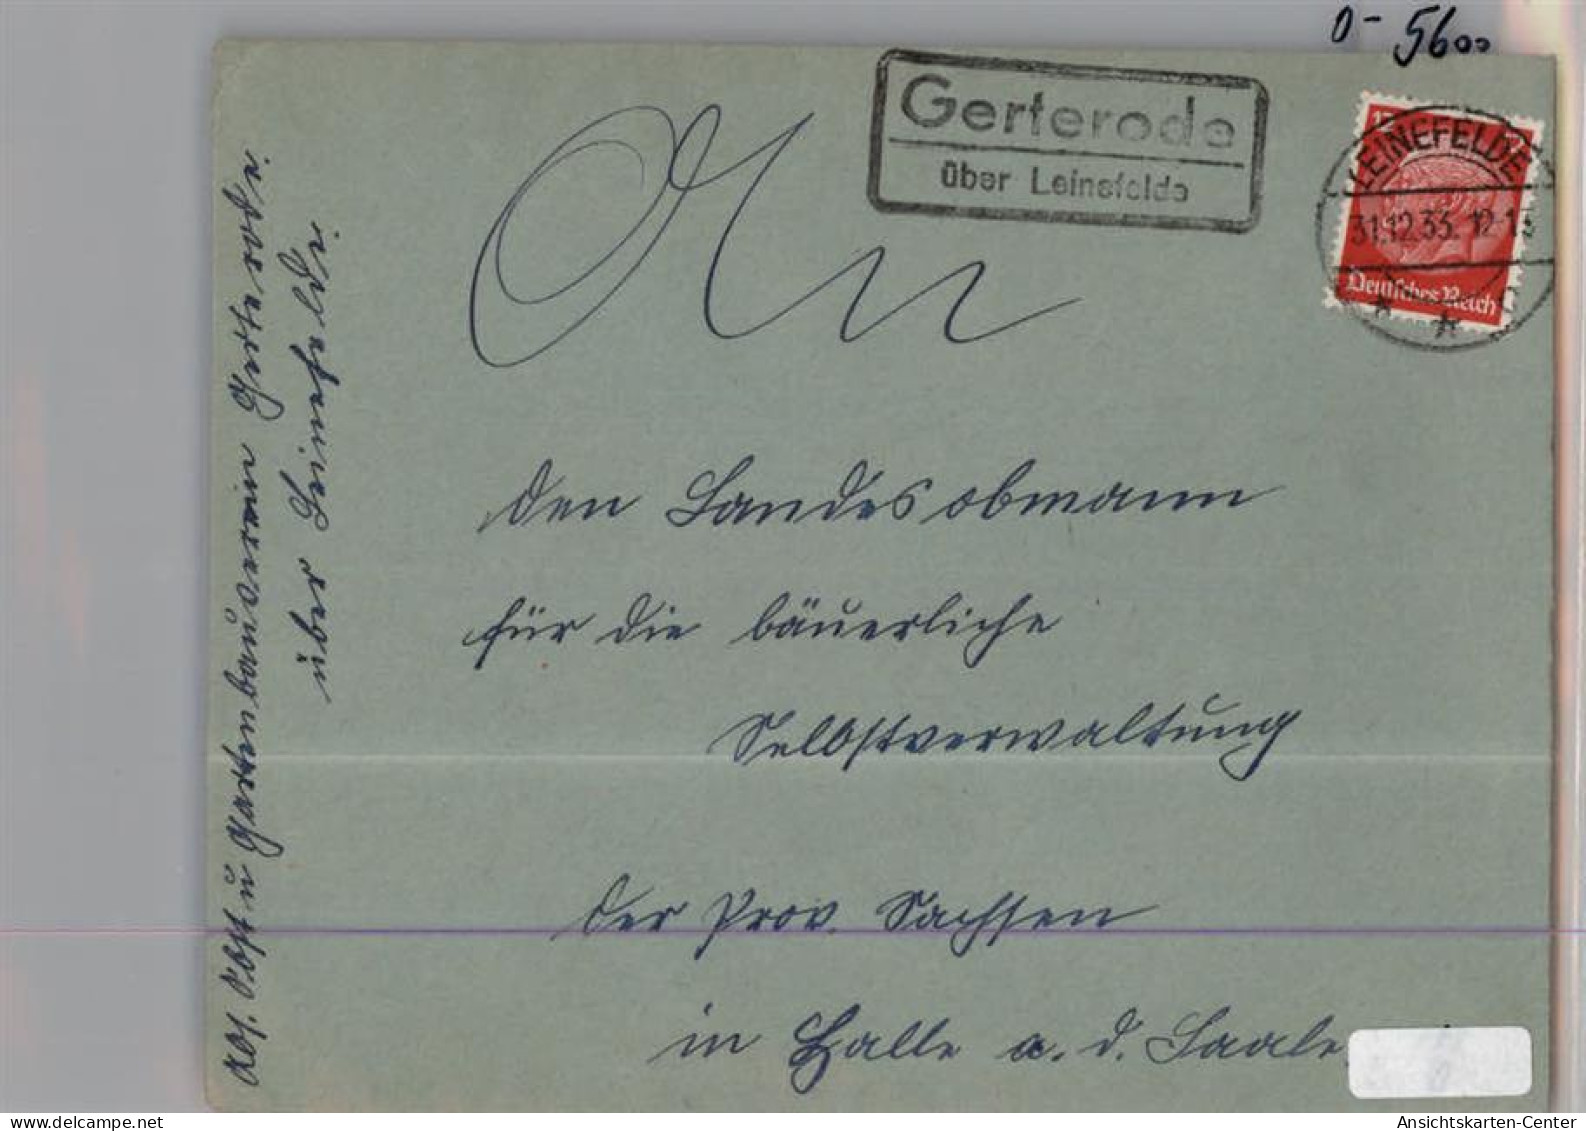 0- 5600
Gerterode
über Leinefelde
LEINEFELDE
31.12.33. 12-13
Deutsches Reich
An
den Landesobmann
für die bäuerliche
Selbstverwaltung
der Prov. Sachsen
in Halle a. d. Saale
Abs. Obst u Gartenbauverein Gerterode
über Leinefelde
Ansichtskarten-Center